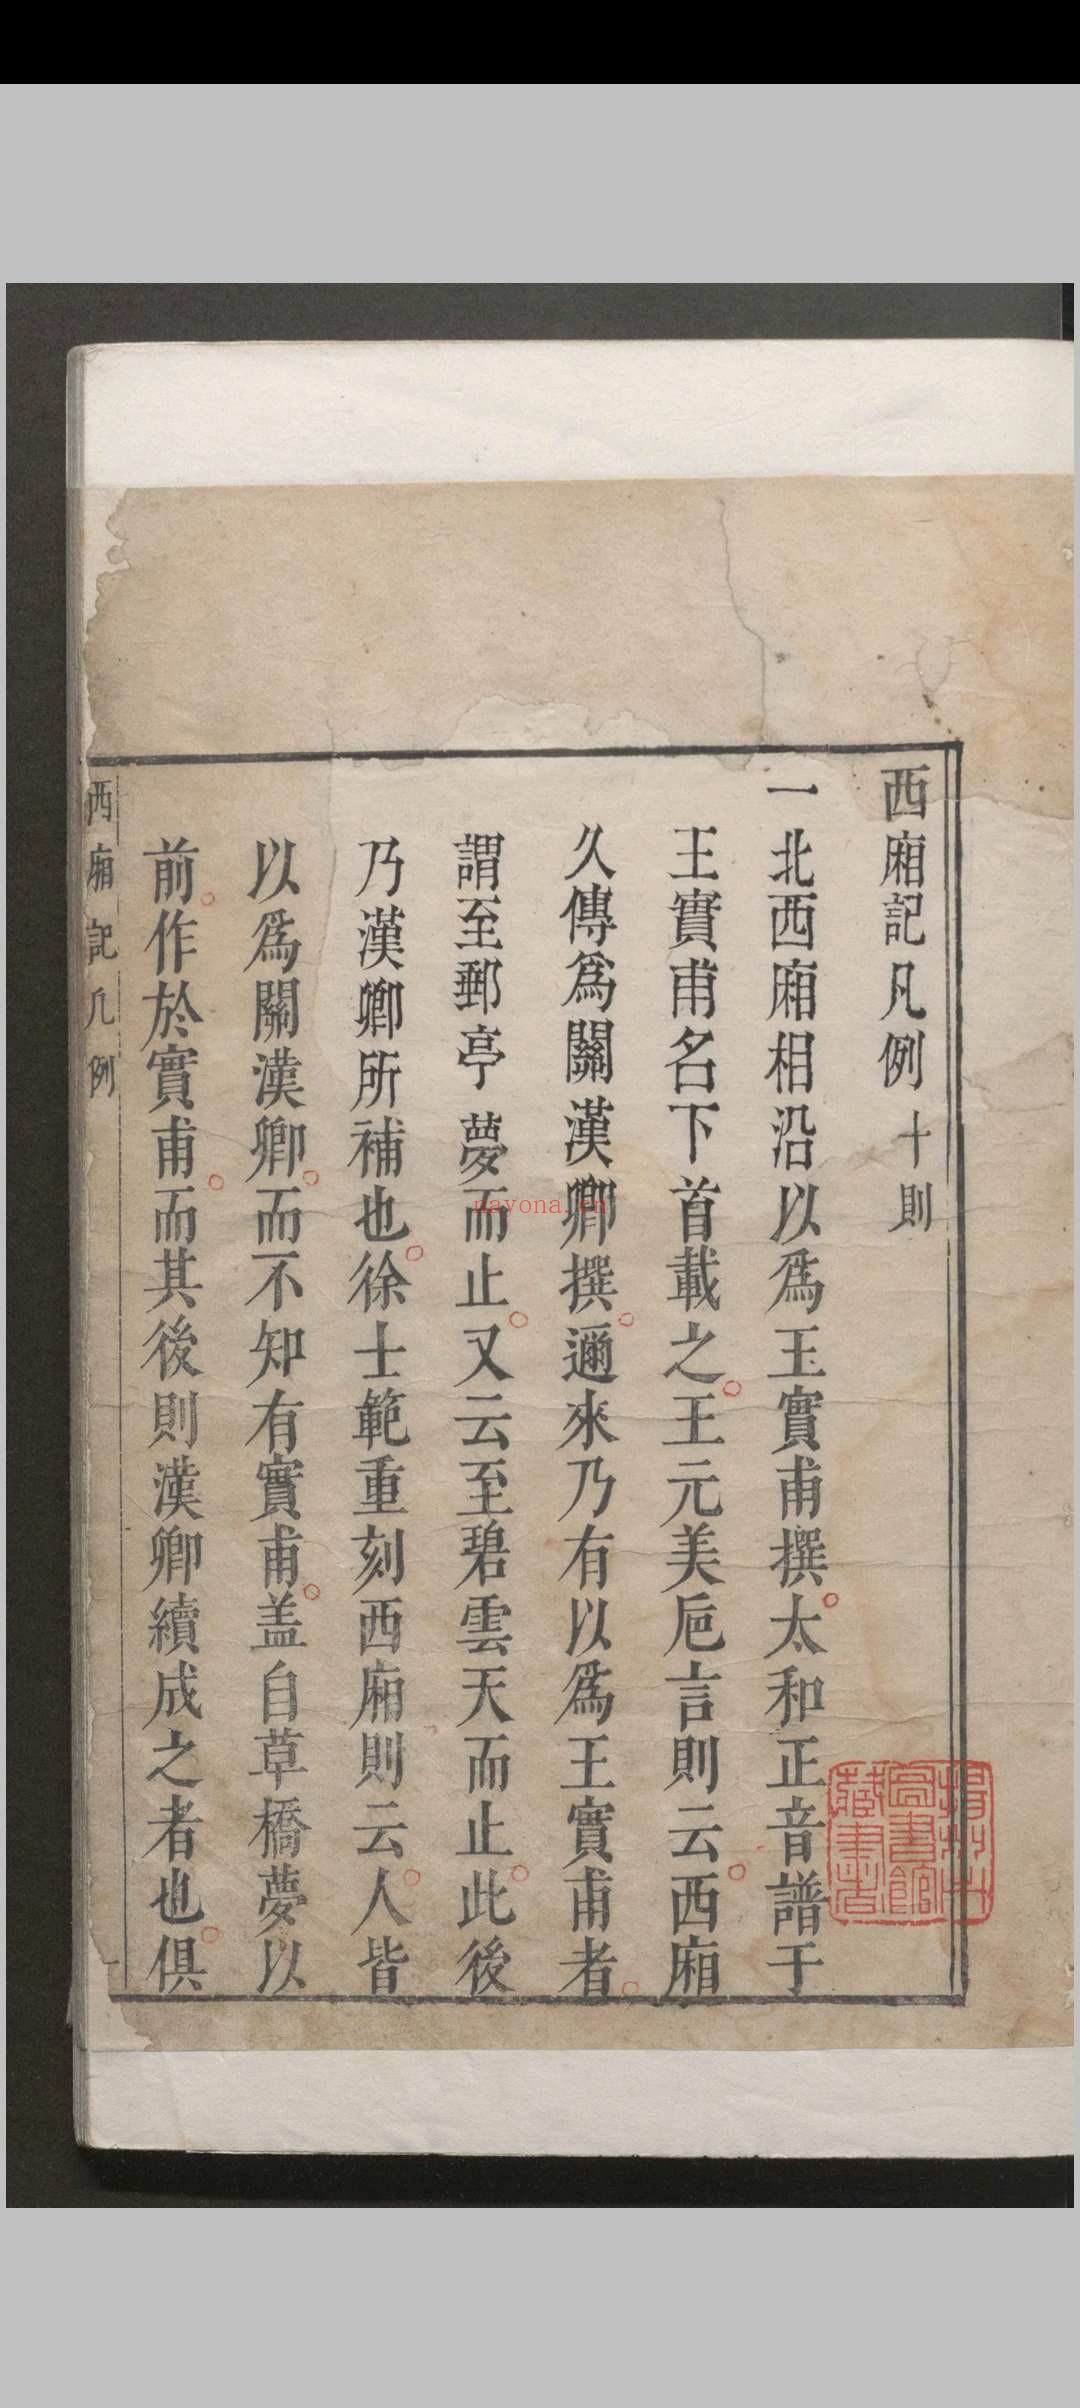 西廂記凡例十則
一北西廂相沿以爲王實甫撰太和正音譜于
王實甫名下首載之王元美巵言則云西廂
久傳爲關漢卿撰邇來乃有以爲王實甫者
謂至郵亭夢而止又云至碧雲天而止此後
乃漢卿所補也徐士範重刻西廂則云人皆
以爲關漢卿而不知有實甫盖自草橋夢以
前作於實甫而其後則漢卿續成之者也俱
西廂記凡例
圖書館
藏書
nayona.cn